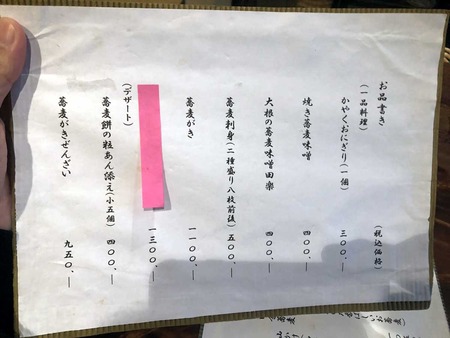 お品書き
(一品料理) (税込価格)
かやくおにぎり(一個) 三〇〇、―
焼き蕎麦味噌 四〇〇、―
大根の蕎麦味噌田楽 四〇〇、―
蕎麦刺身(二種盛り八枚前後) 五〇〇、―
蕎麦がき 一一〇〇、―
一三〇〇、―
(デザート)
蕎麦餅の粒あん添え(小五個) 四〇〇、―
蕎麦がきぜんざい 九五〇、―